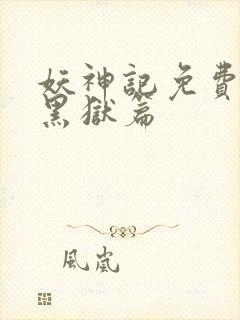 妖神記免費
黑獄篇
風嵐